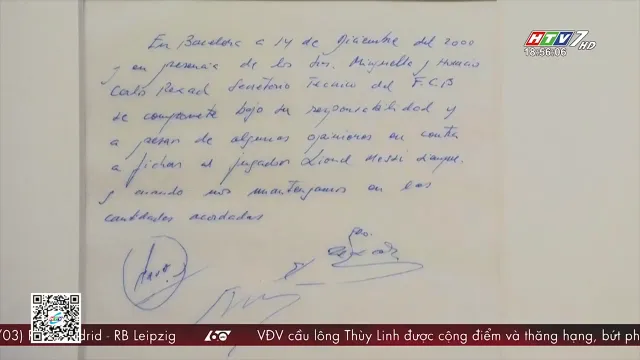 HTV7 HD
18:56:06
En Barcelona a 14 de Diciembre del 2000
y en presencia de los Srs. Minguella y Horacio
Carles Rexach Secretario Tecnico del F.C.B
se compromete bajo su responsabilidad y
a pesar de algunas opiniones en contra
a fichar al jugador Lionel Messi siempre
y cuando nos mantengamos en las
cantidades acordadas
/03) Real Madrid - RB Leipzig 60 VĐV cầu lông Thùy Linh được cộng điểm và thăng hạng, bứt ph